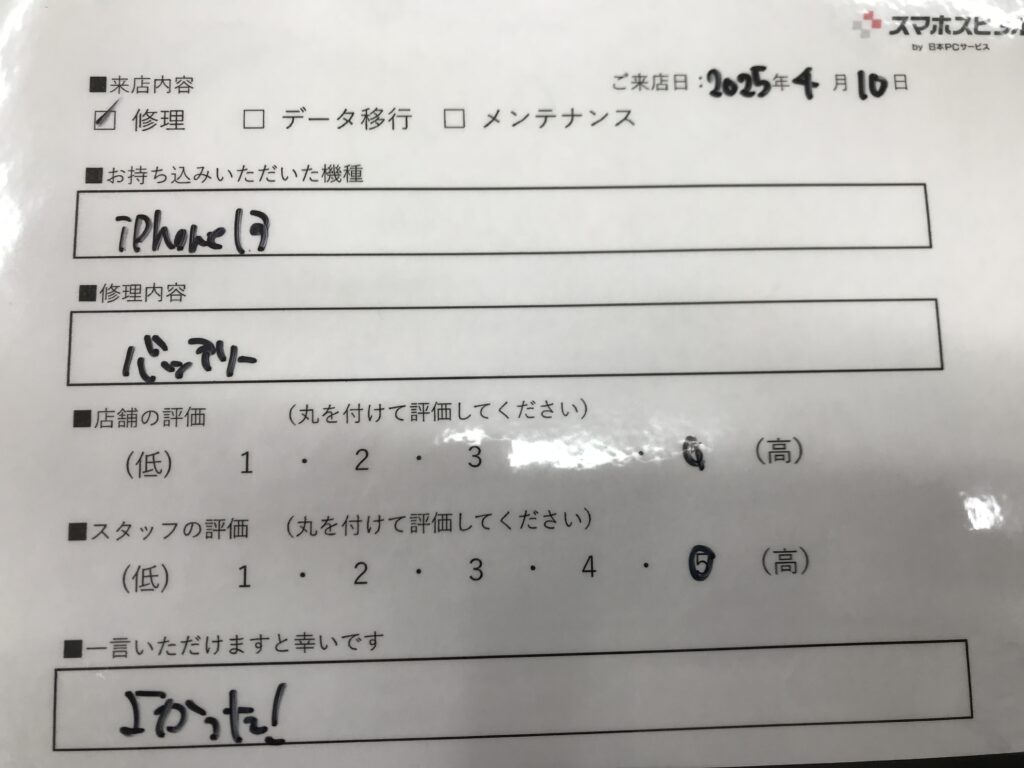 スマホスピタル
by 日本PCサービス
■来店内容
ご来店日:2025年4月10日
☑ 修理 □ データ移行 □ メンテナンス
■お持ち込みいただいた機種
iPhone13
■修理内容
バッテリー
■店舗の評価 （丸を付けて評価してください）
（低） 1 ・ 2 ・ 3 ・ 5 （高）
■スタッフの評価 （丸を付けて評価してください）
（低） 1 ・ 2 ・ 3 ・ 4 ・ 5 （高）
■一言いただけますと幸いです
よかった!